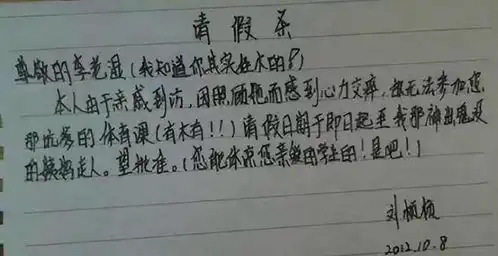 请假条
尊敬的李老湿（我知道你其实挺水的！）
本人由于亲戚到访，因照顾她而感到心力交瘁，故无法参加您
那坑爹的体育课（有木有！！）请假日期于即日起至我那神出鬼没
的姨妈走人。望批准。（您能体谅您亲爱的学生的！是吧！）
刘
2012.10.8